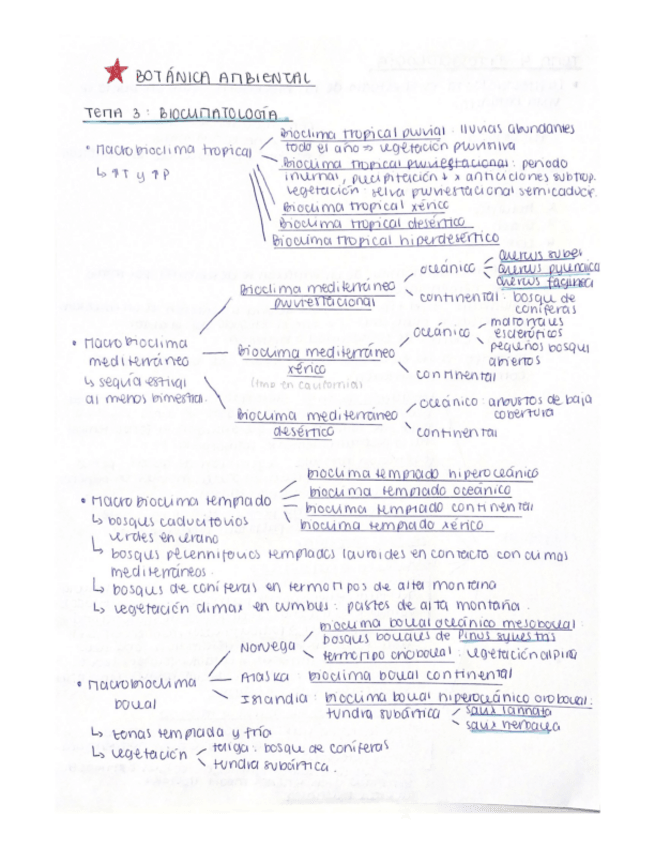 BOTÁNICA AMBIENTAL
TEMA 3: BIOCLIMATOLOGÍA.
• Macrobioclima tropical
↳ ↑T y ↑P
Bioclima tropical pluvial: lluvias abundantes
todo el año => vegetación pluviniva
Bioclima tropical pluviestacional: periodo
invernal, precipitación ↓ x anticiclones subtrop.
vegetación: selva pluviestacional semicaduc.
Bioclima tropical xérico
Bioclima tropical desértico
Bioclima tropical hiperdesértico
• Macrobioclima
mediterráneo
↳ sequía estival
al menos bimestral.
Bioclima mediterráneo
pluviestacional
oceánico
Quercus suber
Quercus pyrenaica
Quercus faginea
continental: bosque de
coníferas
Bioclima mediterráneo
xérico
(imp en california)
oceánico
matorrales
esclerófilos
pequeños bosqu
abiertos
continental
Bioclima mediterráneo
desértico
oceánico: arbustos de baja
cobertura
continental
• Macrobioclima templado
↳ bosques caducifolios
verdes en verano
↳ bosques perennifolios templados lauroides en contacto con climas
mediterráneos.
↳ bosques de coníferas en termotipos de alta montaña
↳ vegetación climax en cumbres: pastos de alta montaña.
bioclima templado hiperoceánico
bioclima templado oceánico
bioclima templado continental
bioclima templado xérico
• Macrobioclima
boreal
Noruega
bioclima boreal oceánico mesoboreal:
bosques boreales de Pinus sylvestris
termotipo orioboreal: vegetación alpina
Alaska: bioclima boreal continental
Islandia: bioclima boreal hiperoceánico oroboreal:
tundra subártica
salix lannata
salix herbacea
↳ zonas templada y fría
↳ vegetación
taliga: bosque de coníferas
tundra subártica.